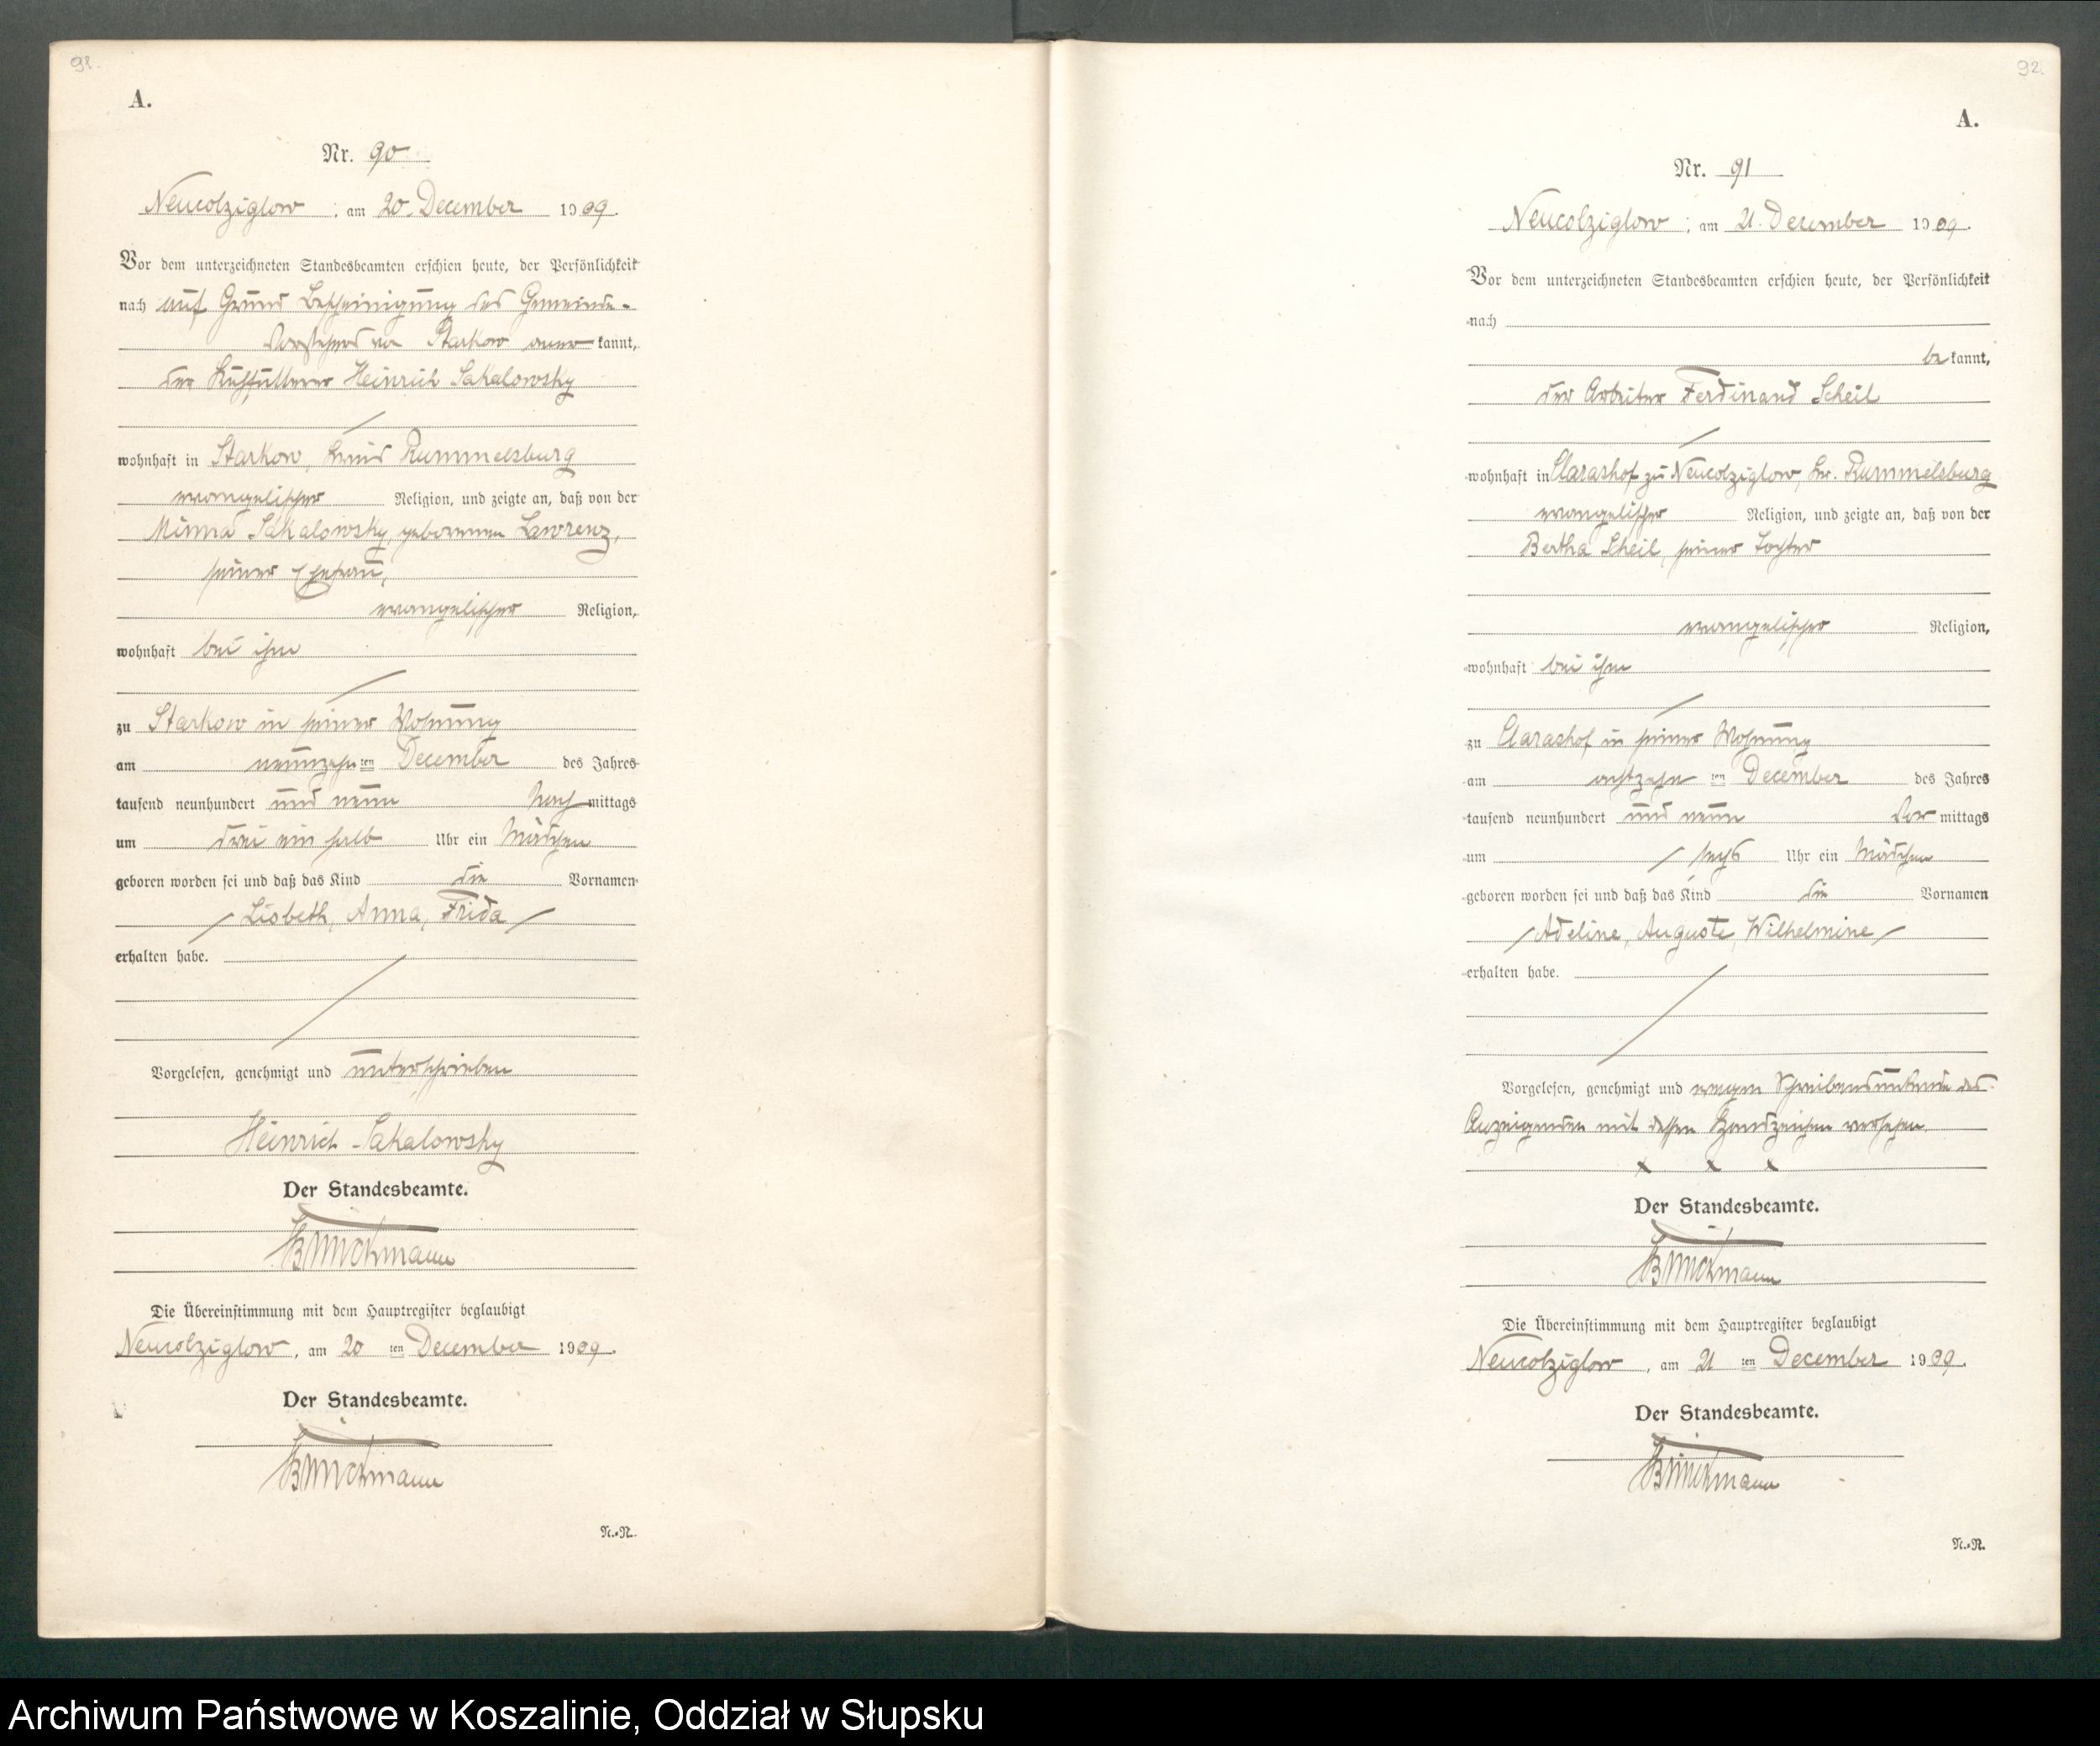 91.
A.
Nr. 90
Neucolziglow, am 20. December 1909.
Vor dem unterzeichneten Standesbeamten erschien heute, der Persönlichkeit
nach auf Grund Bescheinigung des Gemeinde-
Vorstehers von Starkow aner kannt,
der Kuhfütterer Heinrich Sakalowsky
wohnhaft in Starkow, Kreis Rummelsburg
evangelischer Religion, und zeigte an, daß von der
Minna Sakalowsky, geborenen Lawrenz,
seiner Ehefrau,
evangelischer Religion,
wohnhaft bei ihm
zu Starkow in seiner Wohnung
am neunzehn ten December des Jahres
tausend neunhundert und neun Nach mittags
um drei ein halb Uhr ein Mädchen
geboren worden sei und daß das Kind die Vornamen
Lisbeth, Anna, Frida
erhalten habe.
Vorgelesen, genehmigt und unterschrieben
Heinrich Sakalowsky
Der Standesbeamte.
Brückmann
Die Übereinstimmung mit dem Hauptregister beglaubigt
Neucolziglow, am 20 ten December 1909.
Der Standesbeamte.
Brückmann
N.-R.
92.
A.
Nr. 91
Neucolziglow, am 21. December 1909.
Vor dem unterzeichneten Standesbeamten erschien heute, der Persönlichkeit
nach
be kannt,
der Arbeiter Ferdinand Scheil
wohnhaft in Clarashof zu Neucolziglow, Kr. Rummelsburg
evangelischer Religion, und zeigte an, daß von der
Bertha Scheil, seiner Tochter
evangelischer Religion,
wohnhaft bei ihm
zu Clarashof in seiner Wohnung
am achtzehn ten December des Jahres
tausend neunhundert und neun Vor mittags
um sechs Uhr ein Mädchen
geboren worden sei und daß das Kind die Vornamen
Adeline, Auguste, Wilhelmine
erhalten habe.
Vorgelesen, genehmigt und wegen Schreibensunkunde des
Anzeigenden mit dessen Handzeichen versehen.
x x x
Der Standesbeamte.
Brückmann
Die Übereinstimmung mit dem Hauptregister beglaubigt
Neucolziglow, am 21 ten December 1909.
Der Standesbeamte.
Brückmann
N.-R.
Archiwum Państwowe w Koszalinie, Oddział w Słupsku